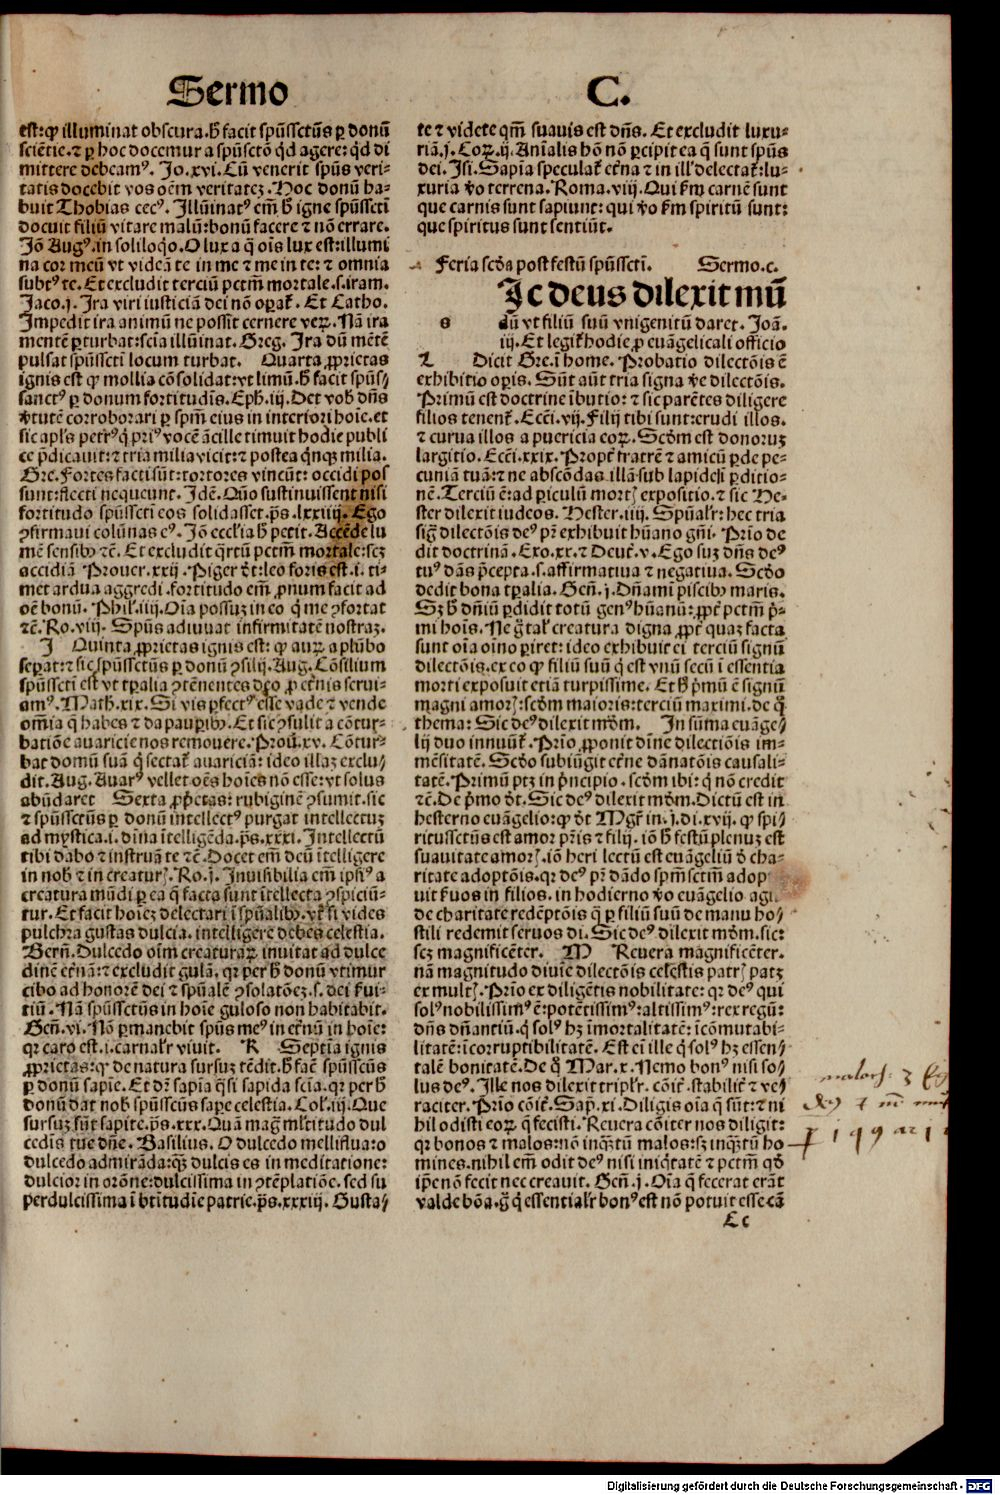 Sermo
C.
est: ꝙ illuminat obscura. h̄ facit spūssctūs ꝑ donū
sciētie. ⁊ ꝑ hoc docemur a spūsctō qd̄ agere: qd̄ di
mittere debeamꝰ. Jo. xvi. Cū venerit spūs veri-
tatis docebit vos oēm veritatez. Hoc donū ha-
buit Thobias cecꝰ. Illūinatꝰ em̄ h̄ igne spūsscti
docuit filiū vitare malū: bonū facere ⁊ nō errare.
Jō Augꝰ. in soliloqo. O lux a q̄ oīs lux est: illumi
na cor meū vt videā te in me ⁊ me in te: ⁊ omnia
subtꝰ te. Et excludit terciū pctm̄ mortale. s. iram.
Jaco. j. Ira viri iusticiā dei nō operat̄. Et Catho.
Impedit ira animū ne possit cernere verꝫ. Nā ira
mentē ꝑturbat: scīa illūinat. Greg. Ira dū mētē
pulsat spūsscti locum turbat. Quarta ꝓprietas
ignis est ꝙ mollia cōsolidat: vt limū. h̄ facit spūs/
sanctꝰ ꝑ donum fortitudīs. Eph. iij. Det vob̄ dn̄s
v̄tutē corroborari ꝑ spm̄ eius in interiori hoīe. et
sic apl̄s petrꝰ q̄ priꝰ vocē ācille timuit hodie publi
ce p̄dicauit: ⁊ tria milia vicit: ⁊ postea qnqꝫ milia.
Gre. Fortes facti sūt: tortores vincūt: occidi pos
sunt: flecti nequeunt. Idē. Quō sustinuissent nisi
fortitudo spūsscti eos solidasset. ps. lxxiiij. Ego
ꝯfirmaui colūnas eꝰ. Jō ecclia h̄ petit. Accēde lu
mē sensibꝰ ⁊c̄. Et excludit q̄rtū pctm̄ mortale: scꝫ
accidiā Prouer. xxij Piger dt̄: leo foris est. i. ti-
met ardua aggredi. fortitudo em̄ ꝓnum facit ad
oē bonū. Phil̄. iiij. Oīa possuꝫ in eo q̄ me ꝯfortat
⁊c̄. Ro. viij. Spūs adiuuat infirmitatē nostraꝫ.
J Quinta ꝓprietas ignis est: ꝙ auꝝ a plūbo
seꝑat: ⁊ sic spūssctūs ꝑ donū ꝯsilij. Aug. Cōsilium
spūsscti est vt tꝑalia ꝯtēnentes deo ꝓ et̄nis serui-
amꝰ. Math. xix. Si vis ꝑfectꝰ esse vade ⁊ vende
om̄ia q̄ habes ⁊ da pauꝑibꝰ. Et sic ꝯsulit a cōtur-
batiōe auaricie nos remouere. Prou. xv. Cōtur-
bat domū suā q̄ sectat̄ auariciā: ideo illaꝫ exclu/
dit. Aug. Auarꝰ vellet oēs hoīes nō esse: vt solus
abūdaret Sexta ꝓprietas: rubiginē ꝯsumit. sic
⁊ spūssctūs ꝑ donū intellectꝰ purgat intellectuꝫ
ad mystica. i. diuīna ītelligēda. ps. xxxi. Intellectū
tibi dabo ⁊ instruā te ⁊c̄. Docet em̄ deū ītelligere
in nob̄ ⁊ in creaturꝭ. Ro. j. Inuisibilia em̄ ipsiꝰ a
creatura mūdi ꝑ ea q̄ facta sunt ītellecta ꝯspiciū-
tur. Et facit hoīeꝫ delectari ī spūalibꝰ. vt si vides
pulchra gustas dulcia. intelligere debes celestia.
Bern̄. Dulcedo oīm creaturaꝝ inuitat ad dulce
dinē et̄nā: ⁊ excludit gulā. qꝛ ꝑ h̄ donū vtimur
cibo ad honorē dei ⁊ spūalē ꝯsolatōeꝫ. s. dei f̄ui-
tiū. Nā spūssctūs in hoīe guloso non habitabit.
Gen̄. vi. Nō ꝑmanebit spūs meꝰ in et̄nū in hoīe:
qꝛ caro est. i. carnalr̄ viuit. K Septīa ignis
ꝓprietas: qꝛ de natura sursuꝫ tēdit. h̄ faē spūsscūs
ꝑ donū sapīe. Et dr̄ sapīa q̄si sapida scīa. qꝛ ꝑ h̄
donū dat nob̄ spūsscūs saꝑe celestia. Col̄. iij. Que
sursuꝫ sūt sapite. ps. xxx. Quā mag̅ ml̄titudo dul
cedīs tue dn̄e. Basilius. O dulcedo melliflua: o
dulcedo admirāda: qꝫ dulcis es in meditatione:
dulcior in orōne: dulcissima in ꝯtēplatiōe. sed su
perdulcissima ī btītudīe patrie. ps. xxxiij. Gusta/
te ⁊ videte qm̄ suauis est dn̄s. Et excludit luxu-
riā. j. Coꝝ. ij. Aīalis hō nō ꝑcipit ea q̄ sunt spūs
dei. Isi. Sapīa speculat̄ et̄na ⁊ in ill̄ delectat̄: lu-
xuria v̄o terrena. Roma. viij. Qui fm̄ carnē sunt
que carnis sunt sapiunt: qui v̄o fm̄ spiritū sunt:
que spiritus sunt sentiūt.
Feria scd̄a post festū spūsscti. Sermo. c.
Ic deus dilexit mū
s dū vt filiū suū vnigenitū daret. Joā.
iij. Et legit̄ hodie ꝓ euāgelicali officio
L Dicit Gre. ī home. Probatio dilectōis ē
exhibitio oꝑis. Sūt aūt tria signa v̄e dilectōis.
Primū est doctrine ībutio: ⁊ sic parētes diligere
filios tenent̄. Ecci. vij. Filij tibi sunt: erudi illos.
⁊ curua illos a puericia eoꝝ. Scd̄m est donoruꝫ
largitio. Ecci. xxix. Propt̄ fratrē ⁊ amicū ꝑde pe-
cuniā tuā: ⁊ ne abscōdas illā sub lapide ī ꝑditio-
nē. Terciū ē: ad ꝑiculū mortꝭ expositio. ⁊ sic He-
ster dilexit iudeos. Hester. iiij. Spūalr̄: hec tria
sig̅ dilectōis deꝰ pr̄ exhibuit hūano gn̄i. Prīo de
dit doctrinā. Exo. xx. ⁊ Deut̄. v. Ego suꝫ dn̄s deꝰ
tuꝰ dās p̄cepta. s. affirmatiua ⁊ negatiua. Scd̄o
dedit bona tꝑalia. Gen̄. j. Dn̄ami piscibꝰ maris.
Sꝫ h̄ dn̄iū ꝑdidit totū genꝰ hūanū: ꝓpt̄ pctm̄ p̄-
mi hoīs. Ne g̅ tal̄ creatura digna ꝓpt̄ quaꝫ facta
sunt oīa oīno ꝑiret: ideo exhibuit ei terciū signū
dilectōis. ex eo ꝙ filiū suū q̄ est vnū secū ī essentia
morti exposuit etiā turpissime. Et h̄ p̄mū ē signū
magni amorꝭ: scd̄m maioris: terciū maximi. de q̄
thema: Sic deꝰ dilexit mōm. In sūma euāge/
lij duo innuūt̄. Prīo ꝓponit dīne dilectiōis im-
mēsitatē. Scd̄o subiūgit et̄ne dānatōis causali-
tatē. Primū ptꝫ in p̄ncipio. scd̄m ibi: q̄ nō credit
⁊c̄. De p̄mo dt̄. Sic deꝰ dilexit mōm. Dictū est in
hesterno euāgelio: ꝙ dt̄ Mgr̄ in. j. di. xvij. ꝙ spi/
ritussctūs est amor pr̄is ⁊ filij. iō h̄ festū plenuꝫ est
suauitate amorꝭ. iō heri lectū est euāgeliū d̄ cha-
ritate adoptōis. qꝛ deꝰ pr̄ dādo spm̄sctm̄ adop
uit f̄uos in filios. in hodierno v̄o euāgelio agi
de charitate redēptōis q̄ ꝑ filiū suū de manu ho/
stili redemit seruos di. Sic deꝰ dilexit mōm. sic:
scꝫ magnificēter. M Reuera magnificēter.
nā magnitudo diuīe dilectōis celestis patrꝭ patꝫ
ex multꝭ. Prīo ex diligētis nobilitate: qꝛ deꝰ qui
solꝰ nobilissimꝰ ē: potētissimꝰ: altissimꝰ: rex regū:
dn̄s dn̄antiū. q̄ solꝰ hꝫ īmortalitatē: īcōmutabi-
litatē: īcorruptibilitatē. Est ei ille q̄ solꝰ hꝫ essen/
talē bonitatē. De q̄ Mar. x. Nemo bonꝰ nisi so/
lus deꝰ. Ille nos dilexit triplr̄. cōit̄. stabilit̄ ⁊ ve/
raciter. Prīo cōit̄. Sap̄. xi. Diligis oīa q̄ sūt: ⁊ ni
hil odisti eoꝝ q̄ fecisti. Reuera cōiter nos diligit:
qꝛ bonos ⁊ malos: nō inq̄tū malos: sꝫ inq̄tū ho
mines. nihil em̄ odit deꝰ nisi iniq̄tatē ⁊ pctm̄ qd̄
ip̄e nō fecit nec creauit. Gen̄. j. Oīa q̄ fecerat erāt
valde bōa. g̅ q̄ essentialr̄ bonꝰ est nō potuit esse cā
Cc
Digitalisierung gefördert durch die Deutsche Forschungsgemeinschaft - DFG